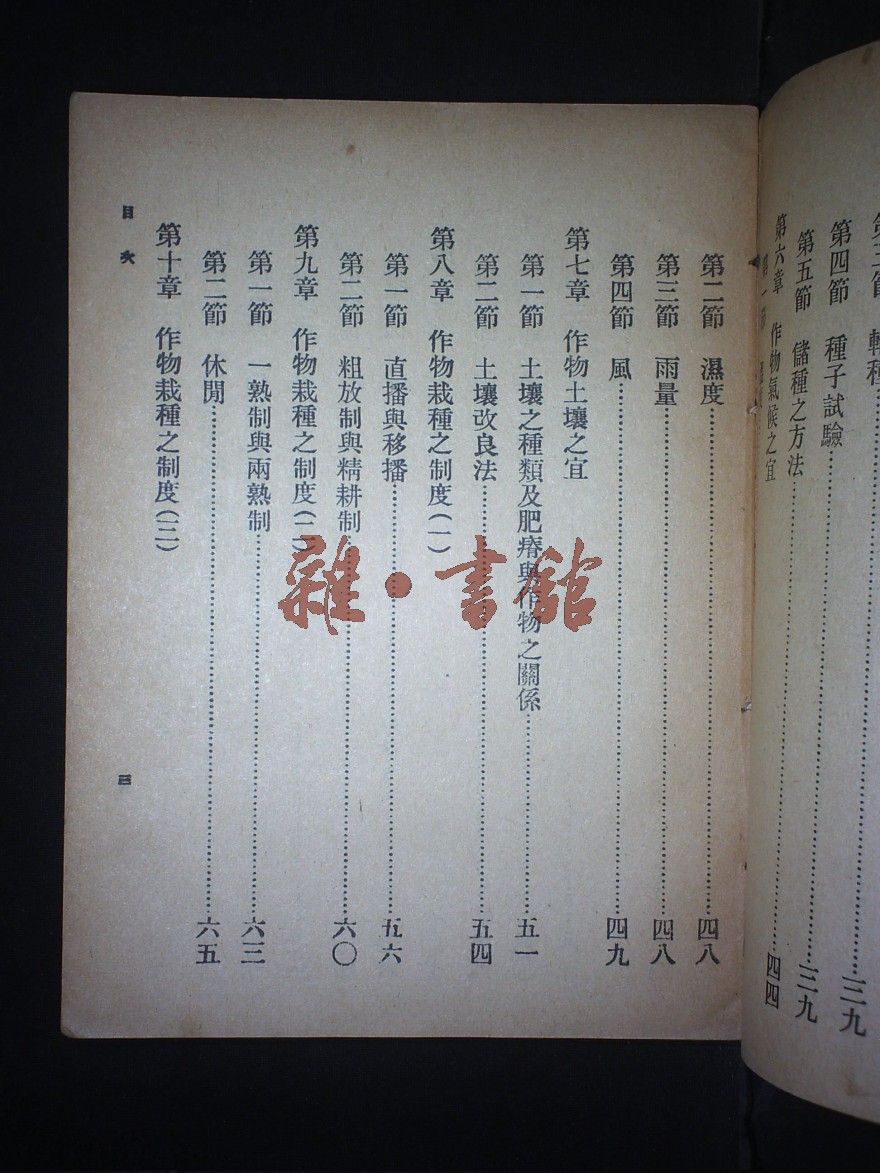 第四節　種子試驗……三九
第五節　儲種之方法……三九
第六章　作物氣候之宜
四四
第二節　濕度……四八
第三節　雨量……四八
第四節　風……四九
第七章　作物土壤之宜
第一節　土壤之種類及肥瘠與作物之關係……五一
第二節　土壤改良法……五四
第八章　作物栽種之制度(一)
第一節　直播與移播……五六
第二節　粗放制與精耕制……六〇
第九章　作物栽種之制度(二)
第一節　一熟制與兩熟制……六三
第二節　休閒……六五
第十章　作物栽種之制度(三)
目次
三
雜·書館